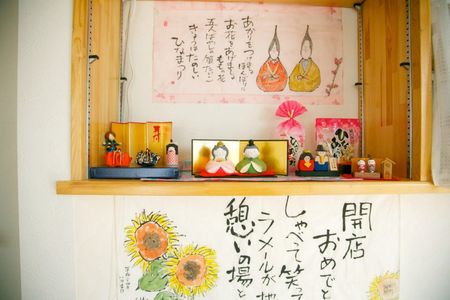 あかりをつけましょ
ぼんぼりに
お花をあげましょ
ももの花
五人ばやしの笛たいこ
きょうはたのしい
ひなまつり
開店
おめでと
しゃべって笑っ
ラメールが
憩いの場と